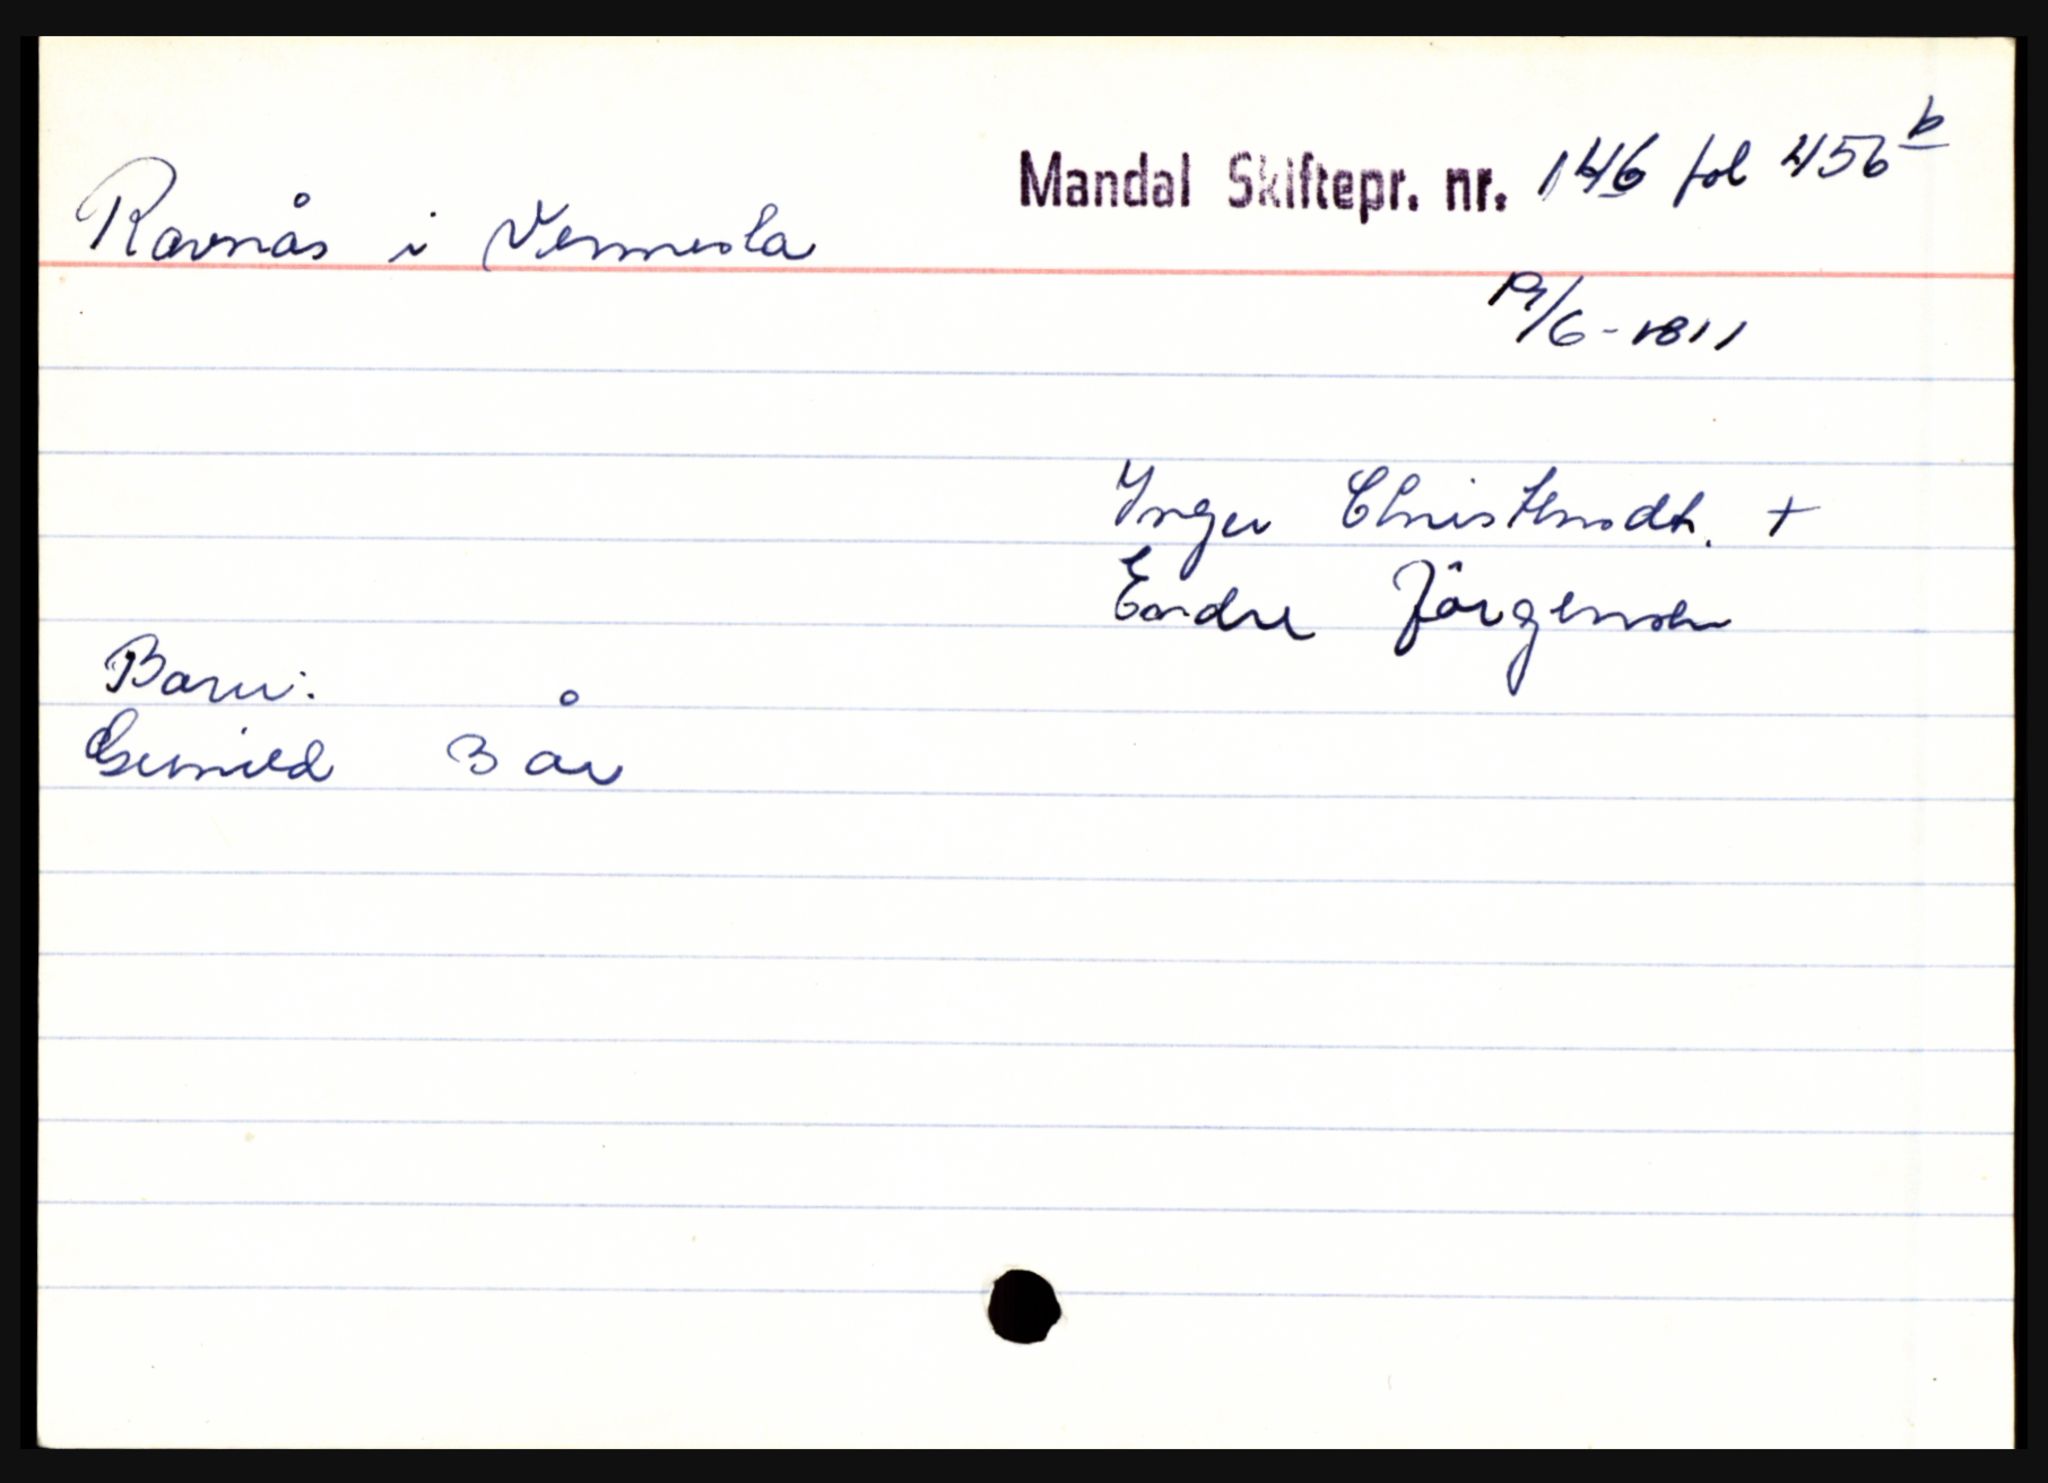 Mandal Skiftepr. nr. 146 fol 456 b
Ravnås i Vennesla
19/6-1811
Inger Christensdt. +
Endre Jörgensen
Barn:
Gunild 3 år